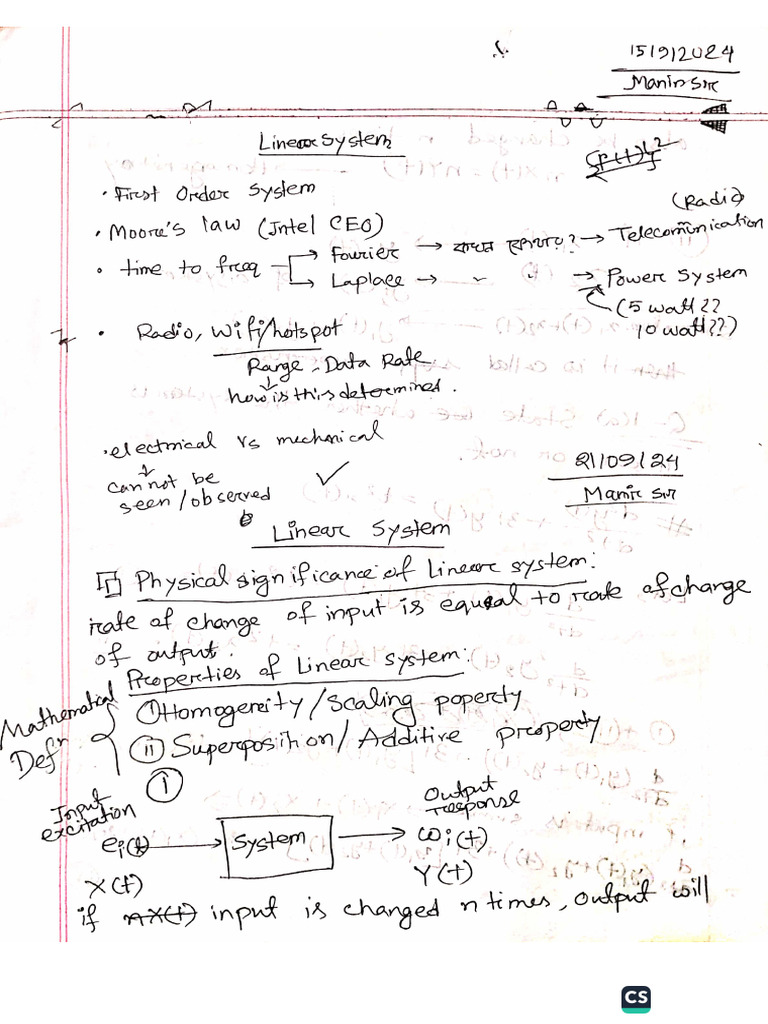 15/9/2024
Manir Sir
Linear System
• First Order System
• Moore's law (Intel CEO)
(Radio)
• time to freq → Fourier → কখন কোনটা? → Telecommunication
→ Laplace → " " → Power System
(5 watt??
10 watt??)
• Radio, Wifi/hotspot
Range - Data Rate
how is this determined.
• electrical vs mechanical
cannot be
seen/observed
21/09/24
Manir Sir
Linear System
Physical significance of Linear system:
rate of change of input is equal to rate of change
of output.
Properties of Linear system:
Mathematical
Defⁿ
(i) Homogereity/Scaling poperty
(ii) Superposition/Additive property
(i)
Input
excitation
Output
response
eᵢ(t) → System → ωᵢ(t)
X(t)
Y(t)
if nX(t) input is changed n times, output will
CS